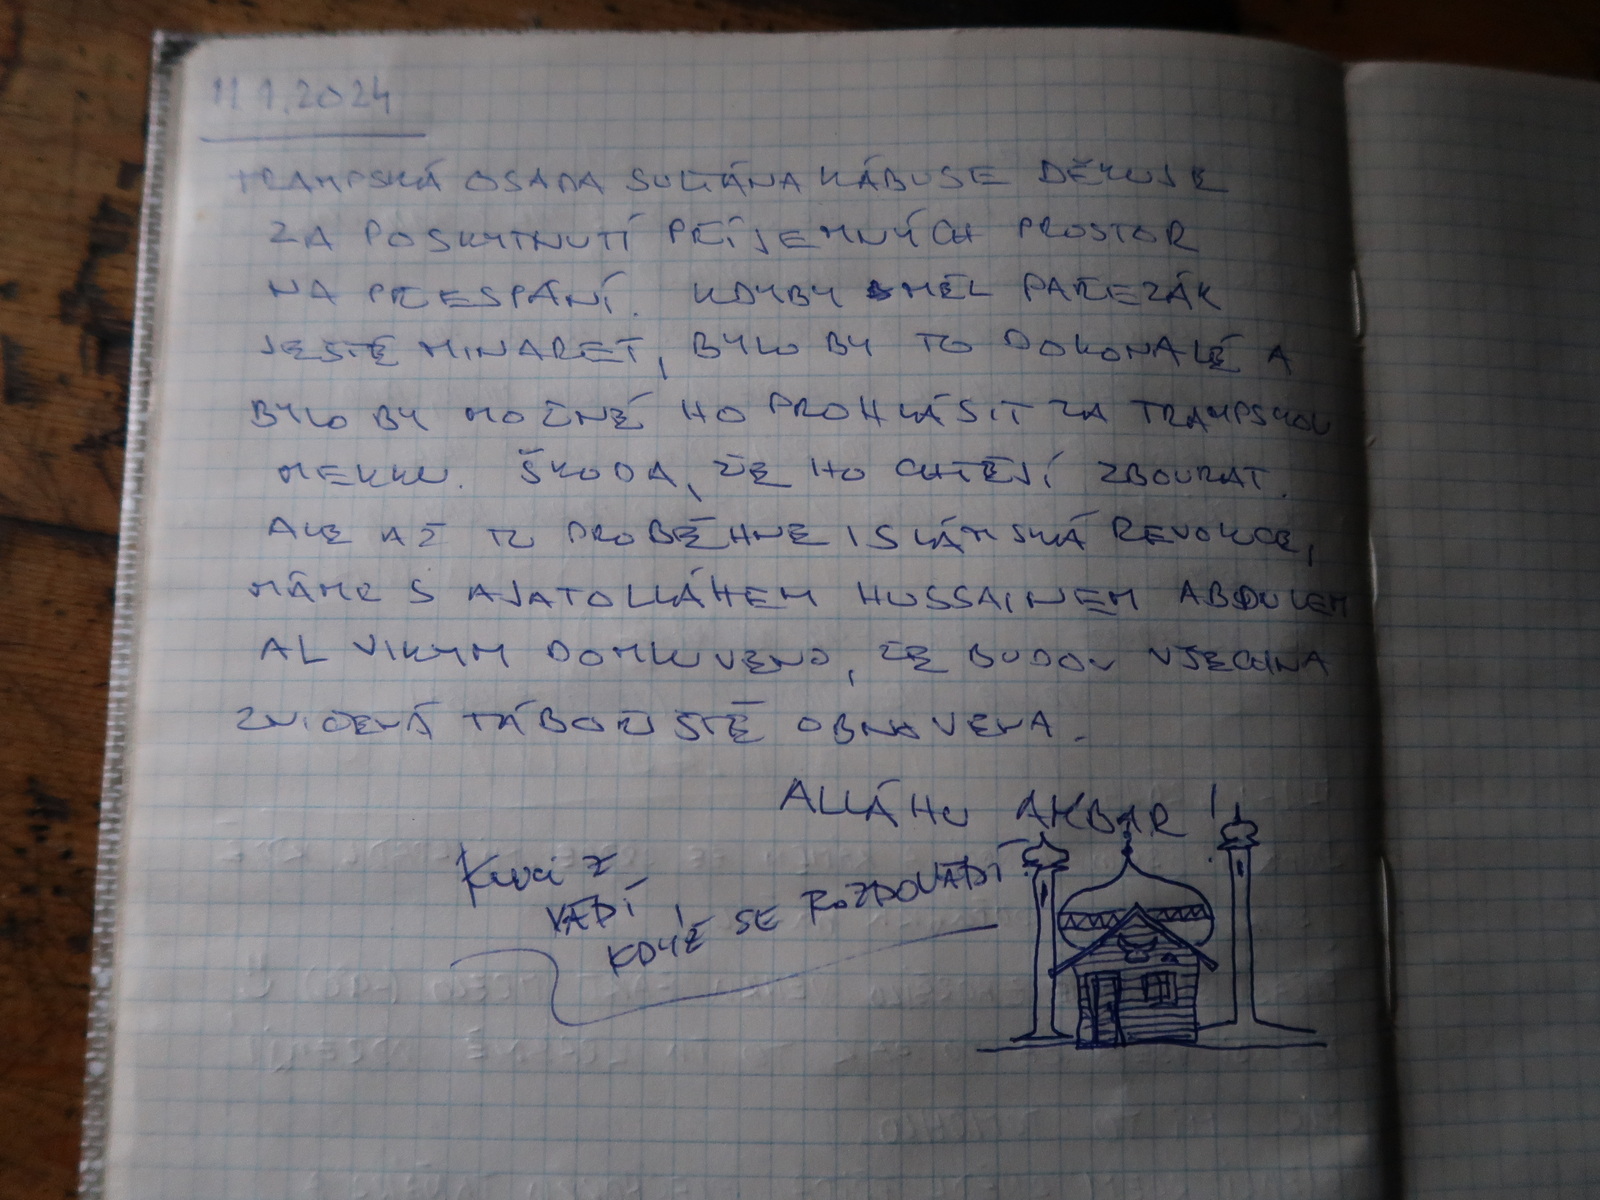 11.1.2024
TRAMPSKÁ OSADA SULTÁNA KÁBUSE DĚKUJE
ZA POSKYTNUTÍ PŘÍJEMNÝCH PROSTOR
NA PŘESPÁNÍ. KDYBY MĚL PAŘEZÁK
JEŠTĚ MINARET, BYLO BY TO DOKONALÉ A
BYLO BY MOŽNÉ HO PROHLÁSIT ZA TRAMPSKOU
MEKKU. ŠKODA, ŽE HO CHTĚJÍ ZBOURAT.
ALE AŽ TU PROBĚHNE ISLÁMSKÁ REVOLUCE,
MÁME S AJATOLLÁHEM HUSSAINEM ABDULEM
AL VIKYM DOMLUVENO, ŽE BUDOU VŠECHNA
ZNIČENÁ TÁBOŘIŠTĚ OBNOVENA.
ALLÁHU AKBAR!
z
VÁDÍ
KDYŽ SE ROZDOVÁDÍ